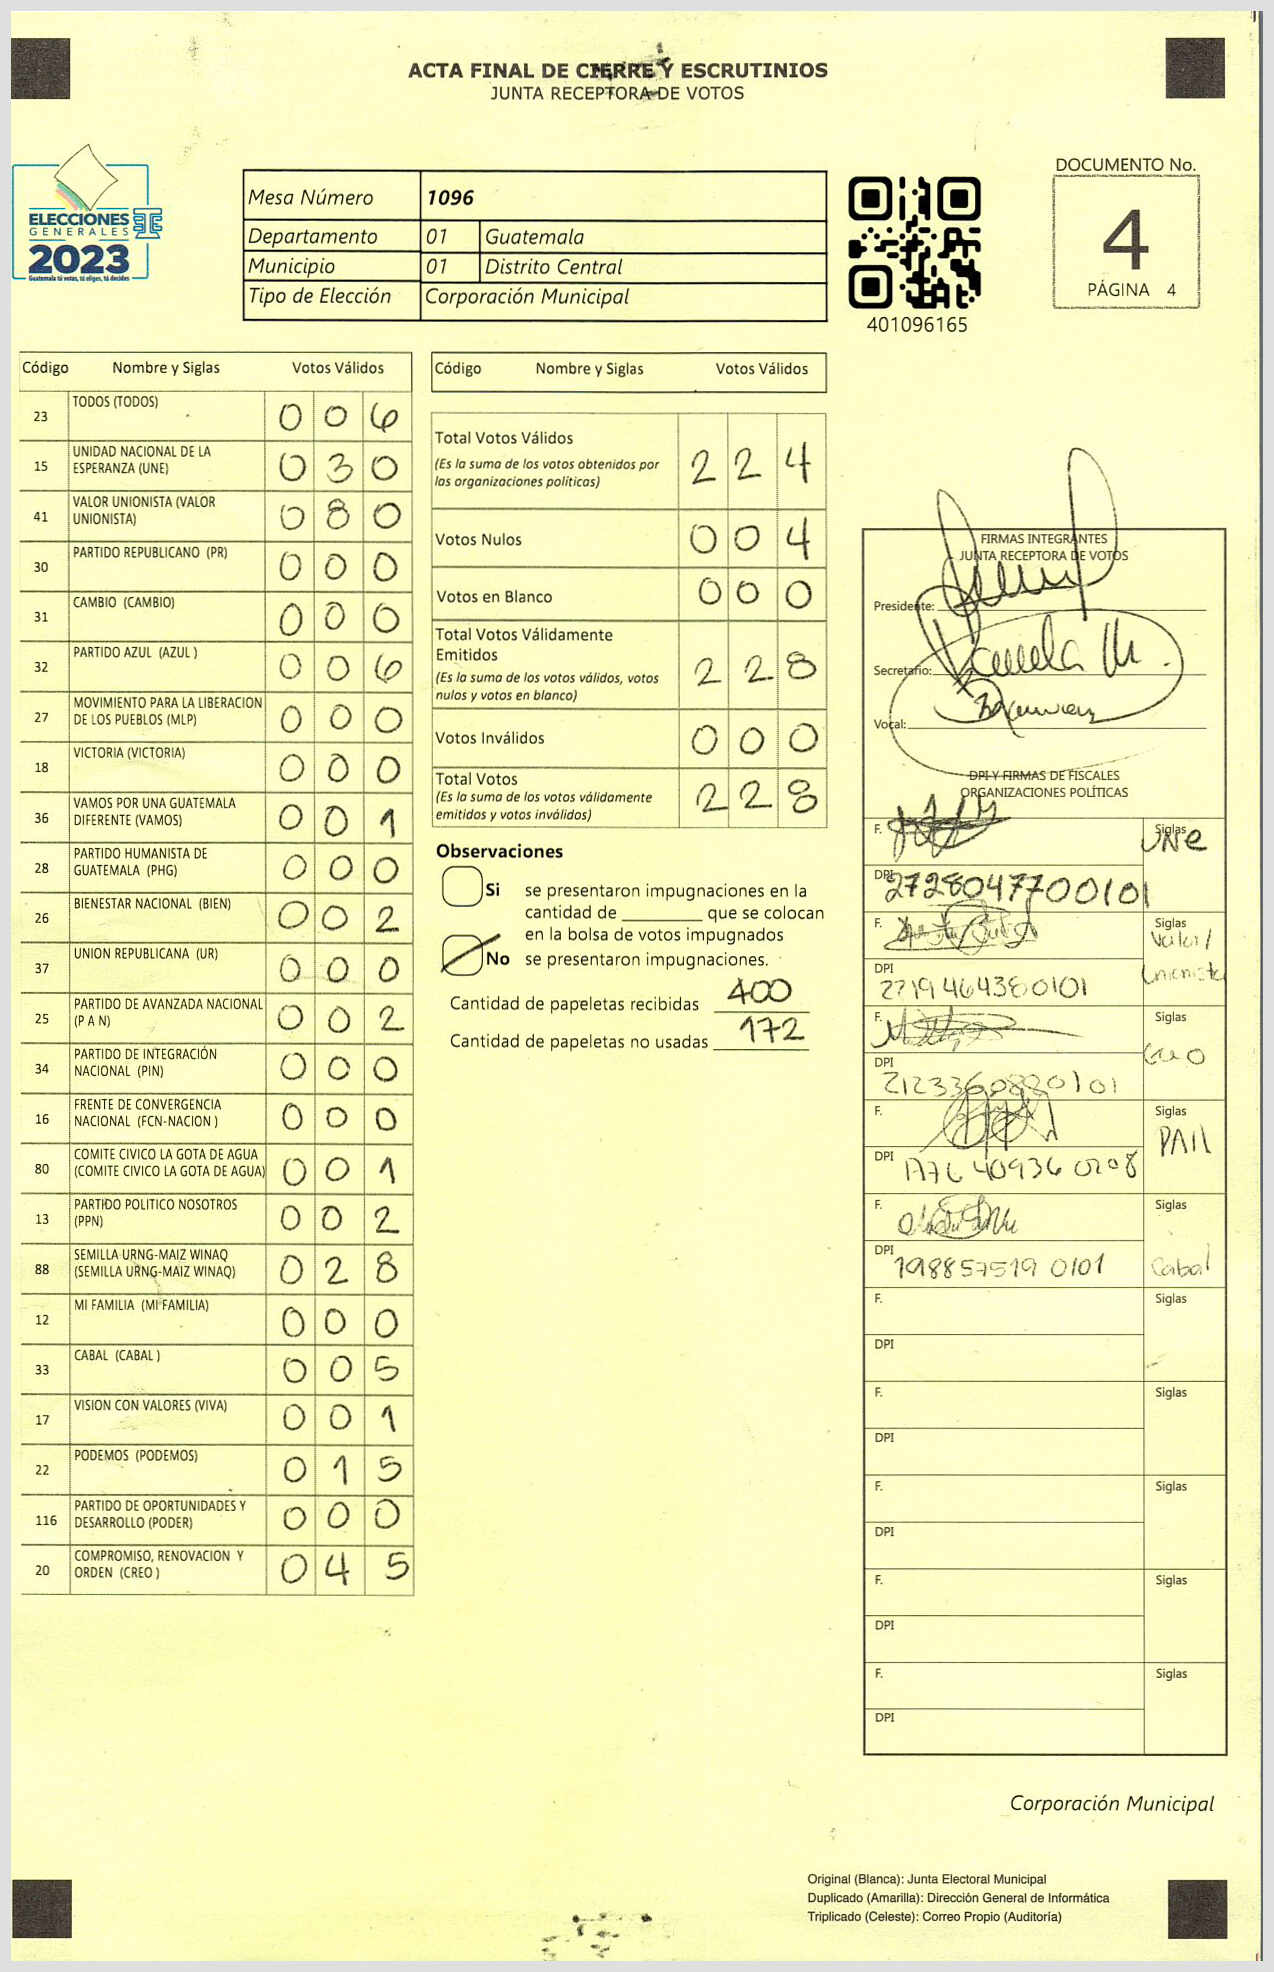 ACTA FINAL DE CIERRE Y ESCRUTINIOS
JUNTA RECEPTORA DE VOTOS
ELECCIONES
GENERALES
2023
Guatemala tú votas, tú eliges, tú decides
Mesa Número 1096
Departamento 01 Guatemala
Municipio 01 Distrito Central
Tipo de Elección Corporación Municipal
401096165
DOCUMENTO No.
4
PÁGINA 4
Código Nombre y Siglas Votos Válidos
23 TODOS (TODOS) 0 0 6
15 UNIDAD NACIONAL DE LA ESPERANZA (UNE) 0 3 0
41 VALOR UNIONISTA (VALOR UNIONISTA) 0 8 0
30 PARTIDO REPUBLICANO (PR) 0 0 0
31 CAMBIO (CAMBIO) 0 0 0
32 PARTIDO AZUL (AZUL ) 0 0 6
27 MOVIMIENTO PARA LA LIBERACION DE LOS PUEBLOS (MLP) 0 0 0
18 VICTORIA (VICTORIA) 0 0 0
36 VAMOS POR UNA GUATEMALA DIFERENTE (VAMOS) 0 0 1
28 PARTIDO HUMANISTA DE GUATEMALA (PHG) 0 0 0
26 BIENESTAR NACIONAL (BIEN) 0 0 2
37 UNION REPUBLICANA (UR) 0 0 0
25 PARTIDO DE AVANZADA NACIONAL (P A N) 0 0 2
34 PARTIDO DE INTEGRACIÓN NACIONAL (PIN) 0 0 0
16 FRENTE DE CONVERGENCIA NACIONAL (FCN-NACION ) 0 0 0
80 COMITE CIVICO LA GOTA DE AGUA (COMITE CIVICO LA GOTA DE AGUA) 0 0 1
13 PARTIDO POLITICO NOSOTROS (PPN) 0 0 2
88 SEMILLA URNG-MAIZ WINAQ (SEMILLA URNG-MAIZ WINAQ) 0 2 8
12 MI FAMILIA (MI FAMILIA) 0 0 0
33 CABAL (CABAL ) 0 0 5
17 VISION CON VALORES (VIVA) 0 0 1
22 PODEMOS (PODEMOS) 0 1 5
116 PARTIDO DE OPORTUNIDADES Y DESARROLLO (PODER) 0 0 0
20 COMPROMISO, RENOVACION Y ORDEN (CREO ) 0 4 5
Código Nombre y Siglas Votos Válidos
Total Votos Válidos 2 2 4
(Es la suma de los votos obtenidos por
las organizaciones políticas)
Votos Nulos 0 0 4
Votos en Blanco 0 0 0
Total Votos Válidamente
Emitidos 2 2 8
(Es la suma de los votos válidos, votos
nulos y votos en blanco)
Votos Inválidos 0 0 0
Total Votos 2 2 8
(Es la suma de los votos válidamente
emitidos y votos inválidos)
Observaciones
Si se presentaron impugnaciones en la
cantidad de ________ que se colocan
en la bolsa de votos impugnados
No se presentaron impugnaciones.
Cantidad de papeletas recibidas 400
Cantidad de papeletas no usadas 172
FIRMAS INTEGRANTES
JUNTA RECEPTORA DE VOTOS
Presidente:
Secretario:
Vocal:
DPI Y FIRMAS DE FISCALES
ORGANIZACIONES POLÍTICAS
F. Siglas
UNe
DPI 2728047700101
F. Siglas
Valor
Unionista
DPI 2219464380101
F. Siglas
DPI 2123360880101
F. Siglas
PAN
DPI 1776409360208
F. Siglas
DPI 1988575190101 Cabal
F. Siglas
DPI
F. Siglas
DPI
F. Siglas
DPI
F. Siglas
DPI
F. Siglas
DPI
Corporación Municipal
Original (Blanca): Junta Electoral Municipal
Duplicado (Amarilla): Dirección General de Informática
Triplicado (Celeste): Correo Propio (Auditoría)